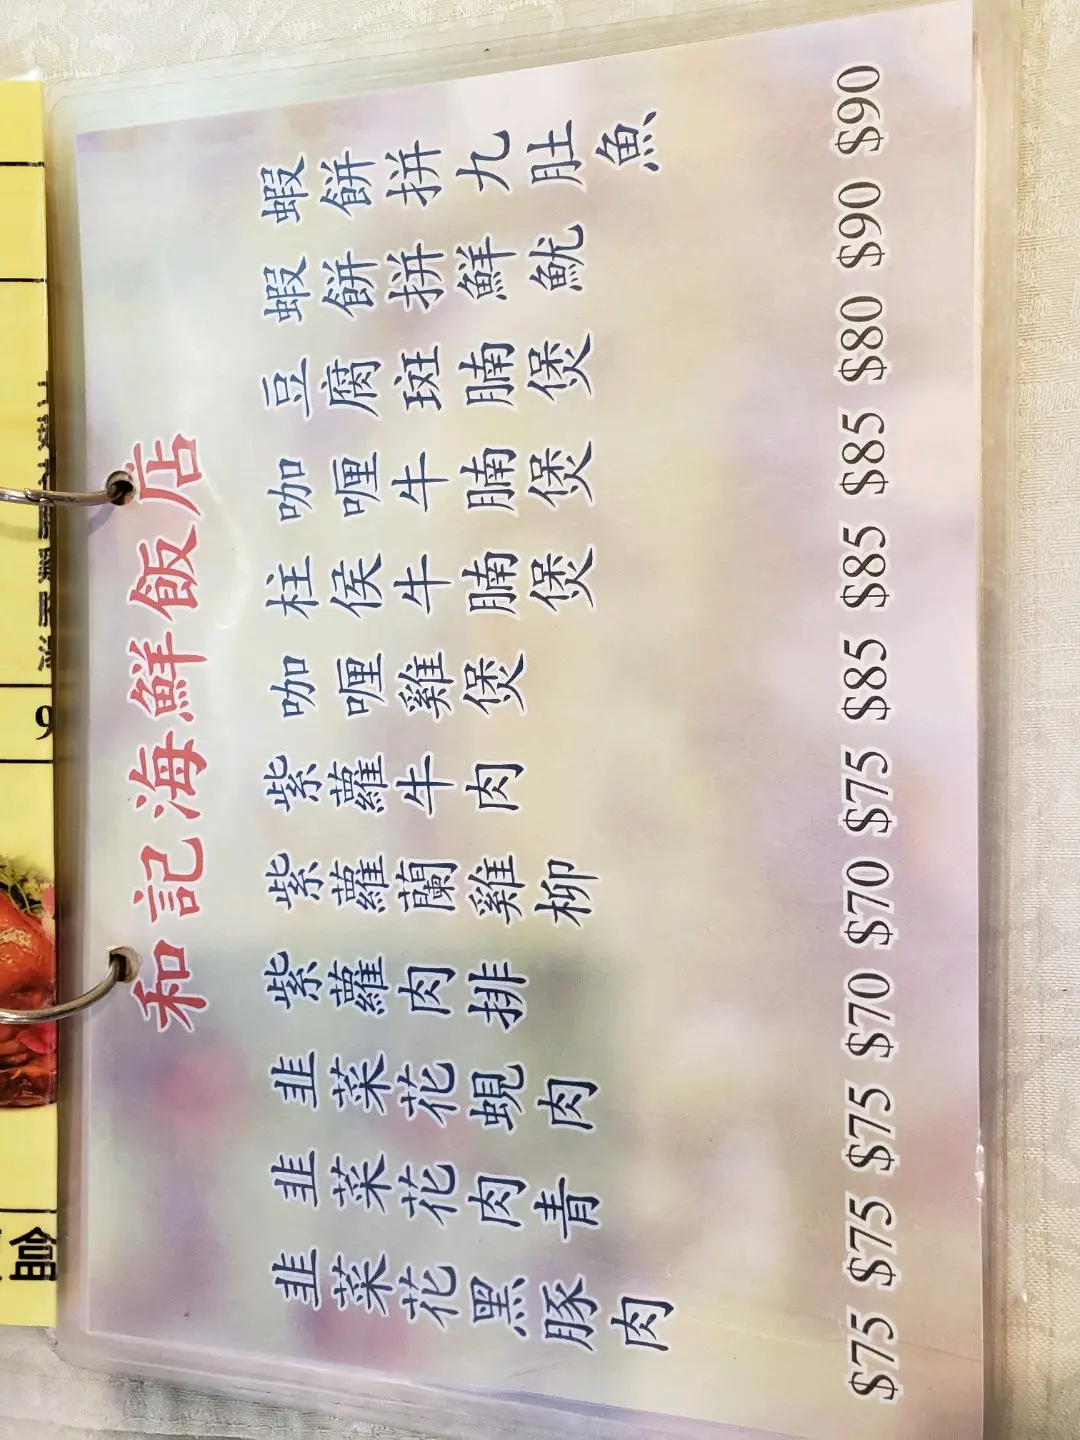 和記海鮮飯店
蝦餅拼九肚魚
蝦餅拼鮮魷
豆腐斑腩煲
咖喱牛腩煲
柱侯牛腩煲
咖喱雞煲
紫蘿牛肉
紫蘿蘭雞柳
紫蘿肉排
韭菜花蜆肉
韭菜花肉青
韭菜花黑豚肉
$75 $75 $75 $70 $70 $75 $85 $85 $85 $80 $90 $90
9